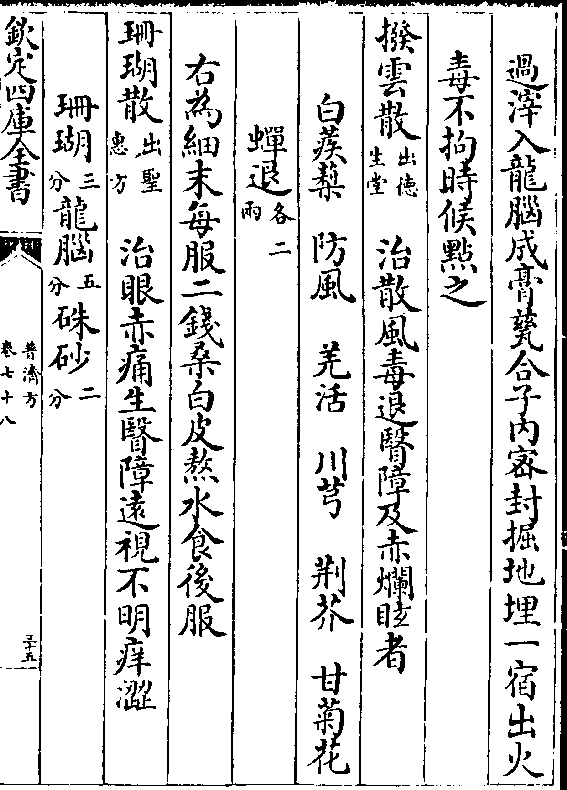 過滓入龍腦成膏甆合子内密封掘地埋一宿出火
毒不拘時候點之
撥雲散出徳生堂 治散風毒退翳障及赤爛眩者
白蒺䔧 防風 羌活 川芎 荆芥 甘菊花
蟬退各二兩
右為細末每服二錢桑白皮熬水食後服
珊瑚散出聖惠方 治眼赤痛生翳障遠視不明痒澀
珊瑚三分龍腦五分硃砂二分
欽定四庫全書
普濟方
卷七十八
三十五